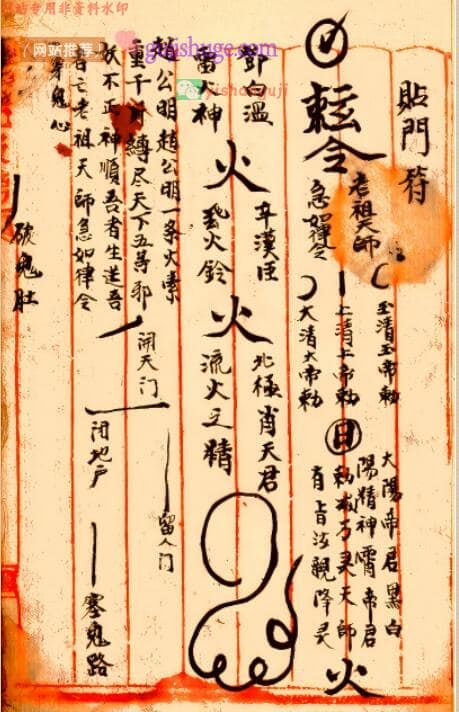 站专用非资料水印
(网站推荐)
gujishuge.com
貼門符
令
老祖天師
急如律令
玉清玉帝勅
上清上帝勅
大清大帝勅
日
大陽帝君黑白
陽精神霄帝君
天師
有旨法親降灵
火
鄧白溫
雷火神
火
辛漢臣
火鈴
火
北極肖天君
流火之精
趙公明趙公明一条火索
重千斤縛尽天下五等邪
妖不正神順吾者生逆吾
者亡老祖天師急如律令
開天门
閉地户
留人门
塞鬼路
穿鬼心
破鬼肚